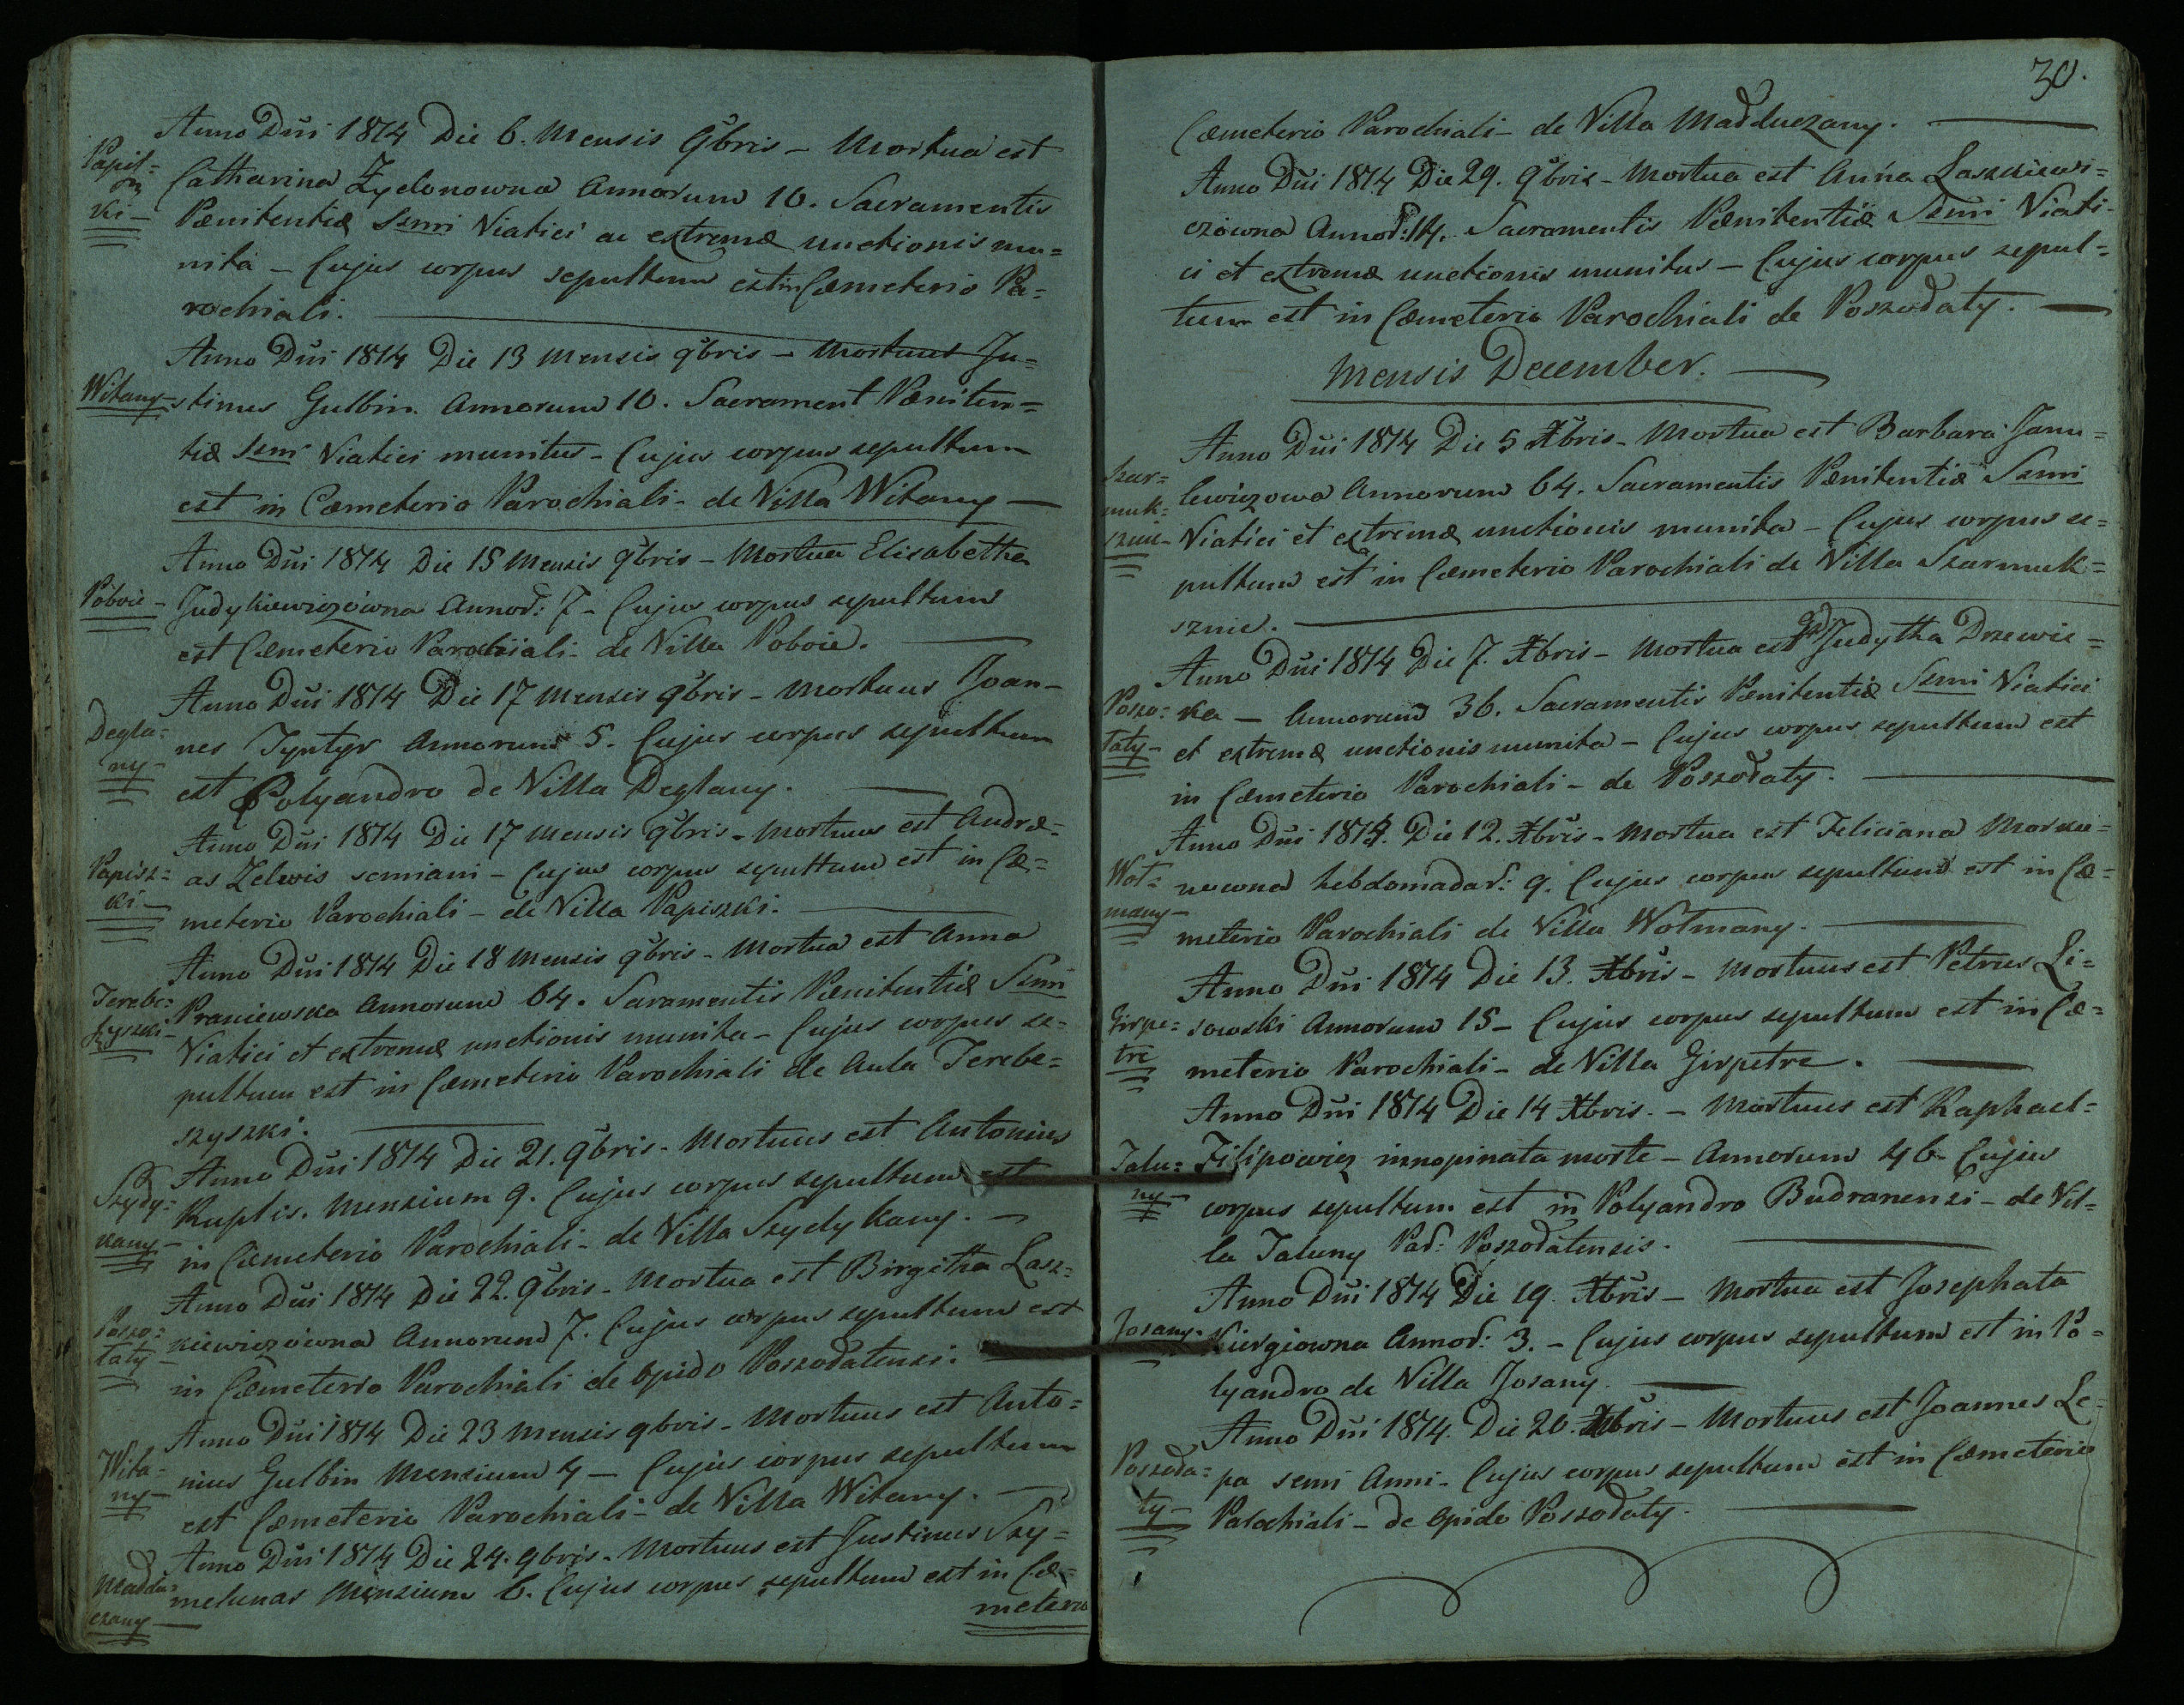 Anno Dñi 1814 Die 6. Mensis 9bris – Mortua est
Catharina Żydonowna Annorum 10. Sacramentis
Pænitentiæ Ssmi Viatici ac extremæ unctionis mu=
nita – Cujus corpus sepultum est in Cæmeterio Pa=
rochiali.
Anno Dñi 1814 Die 13 Mensis 9bris – Mortuus Ju=
Witany – stinus Gulbin. Annorum 10. Sacrament Pæniten=
tiæ Ssmi Viatici munitus – Cujus corpus sepultum
est in Cæmeterio Parochiali – de Villa Witany –
Anno Dñi 1814 Die 15 Mensis 9bris – Mortua Elisabetha
Poboie – Judykiewiczowna Annor: 7 – Cujus corpus sepultum
est Cæmeterio Parochiali – de Villa Poboie.
Anno Dñi 1814 Die 17 Mensis 9bris – Mortuus Joan-
Degla= nes Tyntyr Annorum 5. Cujus corpus sepultum
ny – est Polyandro de Villa Deglany.
Anno Dñi 1814 Die 17 Mensis 9bris – Mortuus est Andræ=
Papisz= as Zelwis semiani – Cujus corpus sepultum est in Cæ=
ki – meterio Parochiali – de Villa Papiszki.
Anno Dñi 1814 Die 18 Mensis 9bris – Mortua est Anna
Terebe= Praniewska Annorum 64. Saramentis Pænitentiæ Ssmi
szyszki – Viatici et extremæ unctionis munita – Cujus corpus se=
pultum est in Cæmeterio Parochiali de Aula Terebe=
szyszki.
Anno Dñi 1814 Die 21. 9bris – Mortuus est Antonius
Szydy= Ruplis. Mensium 9. Cujus corpus sepultum est
kany – in Cæmeterio Parochiali – de Villa Szydykany. –
Anno Dñi 1814 Die 22. 9bris – Mortua est Birgitha Lasz=
Poszo= kiewiczówna Annorum 7. Cujus corpus sepultum est
łaty – in Cæmeterio Parochiali de Opido Poszołatensi.
Anno Dñi 1814 Die 23 Mensis 9bris – Mortuus est Anto=
Wita= nius Gulbin Mensium 4 – Cujus corpus sepultum
ny – est Cæmeterio Parochiali – de Villa Witany.
Anno Dñi 1814 Die 24. 9bris – Mortuus est Justinus Szy=
Maddu= melunas Mensium 6. Cujus corpus sepultum est in Cæ=
czany – meterio
30.
Cæmeterio Parochiali – de Villa Madduczany.
Anno Dñi 1814 Die 29. 9bris – Mortua est Anna Laszkiewi=
czówna Annor: 14. Sacramentis Pænitentiæ Ssmi Viati-
ci et extremæ unctionis munitus – Cujus corpus sepul=
tum est in Cæmeterio Parochiali de Poszołaty.
Mensis December.
Anno Dñi 1814 Die 5 Xbris – Mortua est Barbara Janu=
Szar= lewiczowa Annorum 64. Sacramentis Pænitentiæ Ssmi
muk= Viatici et extremæ unctionis munita – Cujus corpus se=
sznie – pultum est in Cæmeterio Parochiali de Villa Szarmuk=
sznie.
Anno Dñi 1814 Die 7. Xbris – Mortua est Judytha Drzewie=
Poszo= cka – Annorum 36. Sacramentis Pænitentiæ Ssmi Viatici
łaty – et extremæ unctionis munita – Cujus corpus sepultum est
in Cæmeterio Parochiali – de Poszołaty.
Anno Dñi 1814. Die 12. Xbris – Mortua est Feliciana
Wot= hebdomadar: 9. Cujus corpus sepultum est in Cæ=
many – meterio Parochiali de Villa Wotmany.
Anno Dñi 1814 Die 13. Xbris – Mortuus est Petrus Li=
Girpe= sowski Annorum 15 – Cujus corpus sepultum est in Cæ=
tre meterio Parochiali – de Villa Girpetre.
Anno Dñi 1814 Die 14 Xbris. – Mortuus est Raphael
Talu= Filipowicz innopinata morte – Annorum 46 – Cujus
ny – corpus sepultum est in Polyandro Budranensi – de Vil=
la Taluny Par: Poszołatensis.
Anno Dñi 1814 Die 19 Xbris – Mortua est Josephata
Josany – Kiergiowna Annor: 3. – Cujus corpus sepultum est in Po=
lyandro de Villa Josany.
Anno Dñi 1814. Die 20. Xbris – Mortuus est Joannes Le=
Poszoła= pa semi Anni – Cujus corpus sepultum est in Cæmeterio
ty – Parochiali – de Opido Poszołaty.